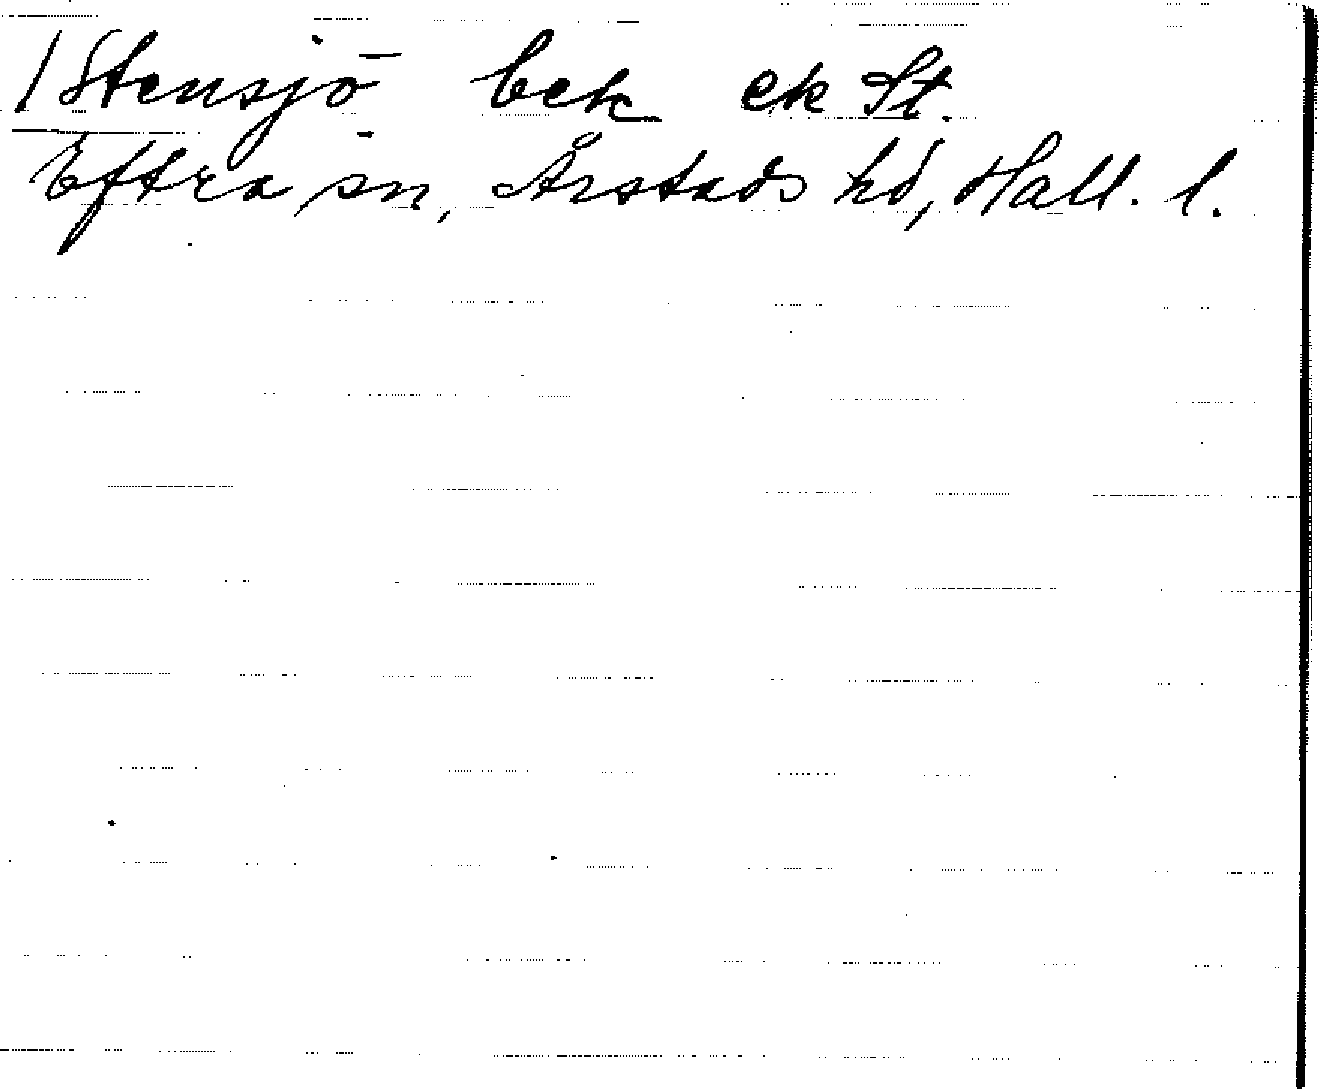 1 Stensjö bek ek St.
Eftra sn, Årstads hd, Hall. l.